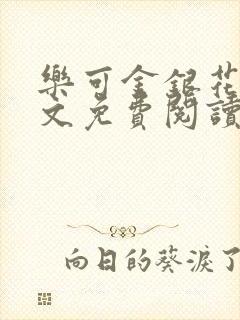 樂可金銀花
文免費閱讀
向日的葵淚了